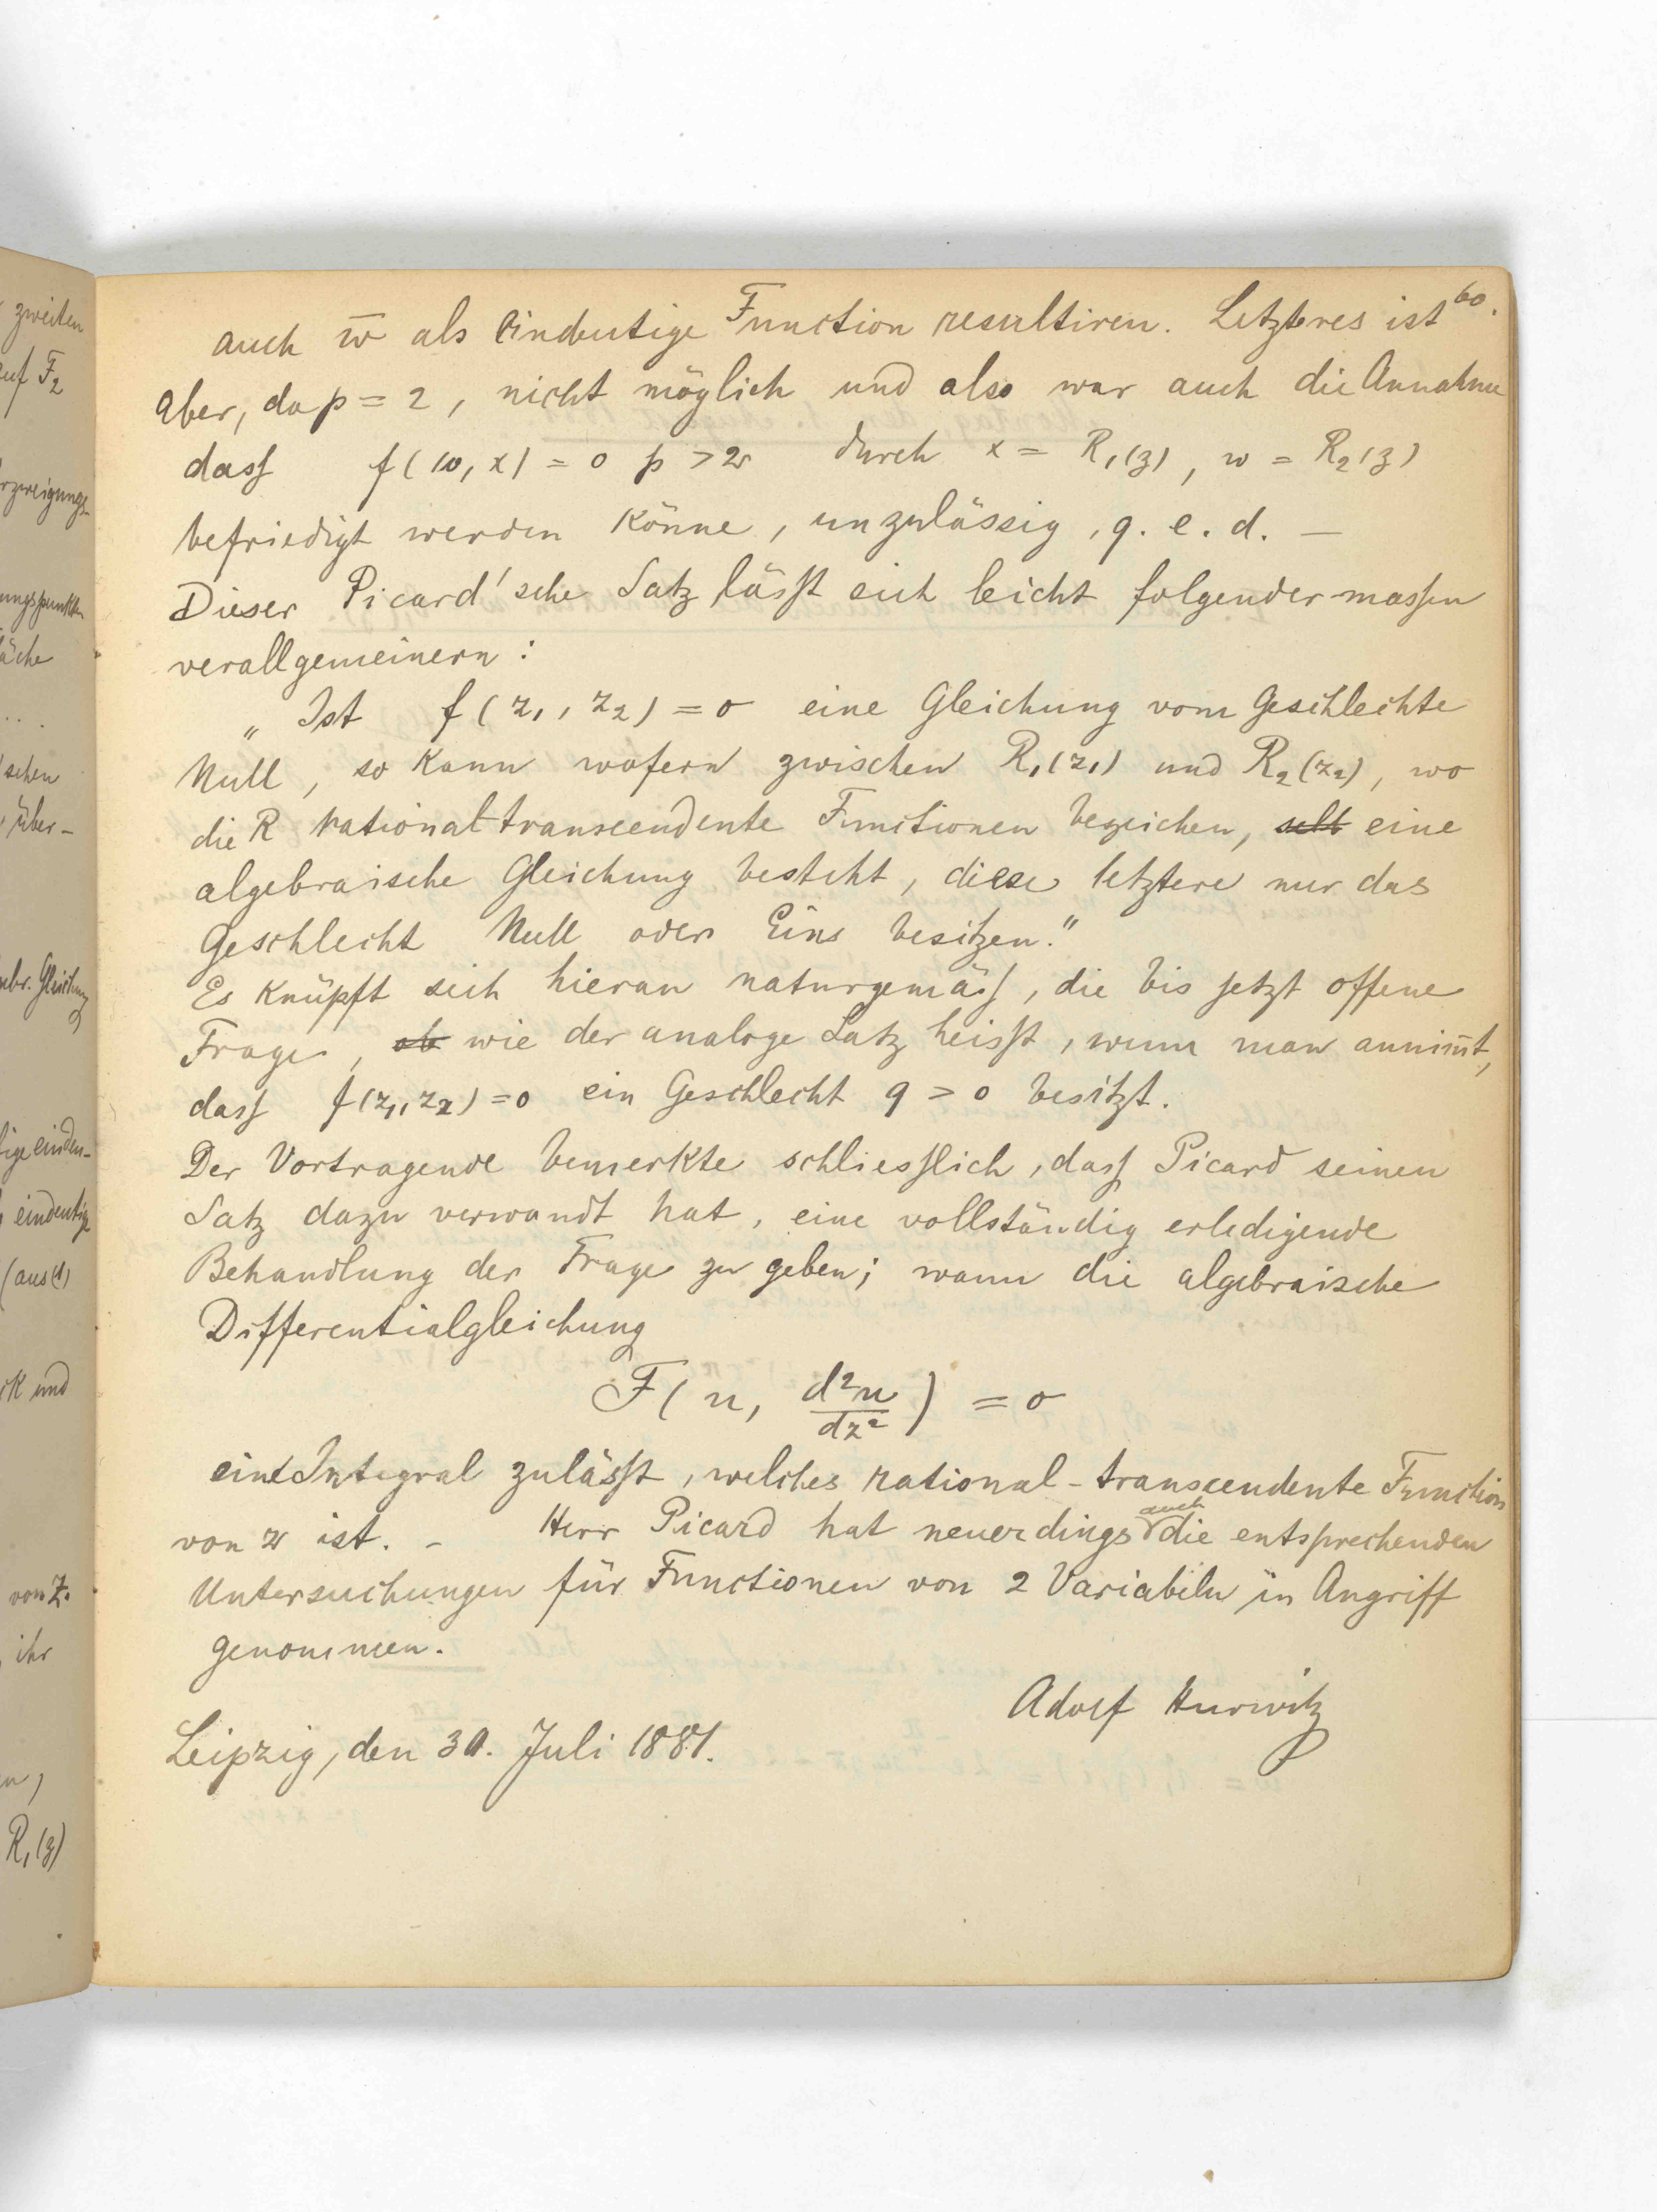 60.
auch w̄ als eindeutige Function resultiren. Letzteres ist
aber, da p = 2, nicht möglich und also war auch die Annahme
dass f(w, x) = 0 p > 2 durch x = R₁(z), w = R₂(z)
befriedigt werden könne, unzulässig, q. e. d. —
Dieser Picard'sche Satz lässt sich leicht folgender-massen
verallgemeinern:
„Ist f(z₁, z₂) = 0 eine Gleichung vom Geschlechte
Null, so kann wofern zwischen R₁(z₁) und R₂(z₂), wo
die R rational-transcendente Functionen bezeichen, selb eine
algebraische Gleichung besteht, diese letztere nur das
Geschlecht Null oder Eins besitzen."
Es knüpft sich hieran naturgemäss, die bis jetzt offene
Frage, ob wie der analoge Satz heisst, wenn man annim̄t,
dass f(z₁, z₂) = 0 ein Geschlecht q > 0 besitzt.
Der Vortragende bemerkte schliesslich, dass Picard seinen
Satz dazu verwandt hat, eine vollständig erledigende
Behandlung der Frage zu geben; wann die algebraische
Differentialgleichung
F(u, d²u/dz²) = 0
ein Integral zulässt, welches rational-transcendente Function
von z ist. – Herr Picard hat neuerdings auch die entsprechenden
Untersuchungen für Functionen von 2 Variabeln in Angriff
genommen.
Adolf Hurwitz
Leipzig, den 30. Juli 1881.
zweiten
auf F₂
rzweigungs-
ungspunkten
äche
schen
über-
ebr. Gleichung
eindeutige
(aus (1)
und
von Z.
ihr
R₁(z)